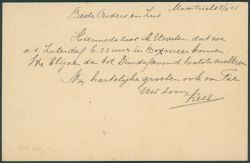 Maastricht
Beste Ouders en Zus
Hiermede laat ik U weten dat we
a.s. Zaterdag 6.22 uur in Boxmeer komen.
We blijven dan tot Dinsdagavond laatste sneltrein
Na hartelijke groeten ook van
Uw zoon